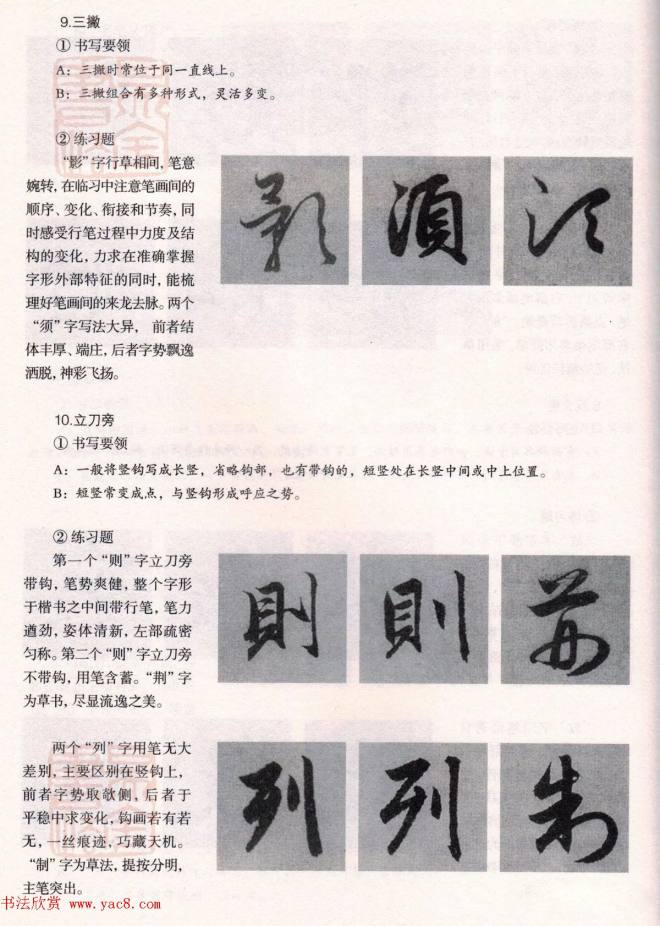 9.三撇
① 书写要领
A：三撇时常位于同一直线上。
B：三撇组合有多种形式，灵活多变。
② 练习题
“影”字行草相间，笔意
婉转，在临习中注意笔画间的
顺序、变化、衔接和节奏，同
时感受行笔过程中力度及结
构的变化，力求在准确掌握
字形外部特征的同时，能梳
理好笔画间的来龙去脉。两个
“须”字写法大异， 前者结
体丰厚、端庄，后者字势飘逸
洒脱，神彩飞扬。
影 須 须
10.立刀旁
① 书写要领
A：一般将竖钩写成长竖，省略钩部，也有带钩的，短竖处在长竖中间或中上位置。
B：短竖常变成点，与竖钩形成呼应之势。
② 练习题
第一个“则”字立刀旁
带钩，笔势爽健，整个字形
于楷书之中间带行笔，笔力
遒劲，姿体清新，左部疏密
匀称。第二个“则”字立刀旁
不带钩，用笔含蓄。“荆”字
为草书，尽显流逸之美。
則 則 荆
两个“列”字用笔无大
差别，主要区别在竖钩上，
前者字势取欹侧，后者于
平稳中求变化，钩画若有若
无，一丝痕迹，巧藏天机。
“制”字为草法，提按分明，
主笔突出。
列 列 制
书法欣赏 www.yac8.com